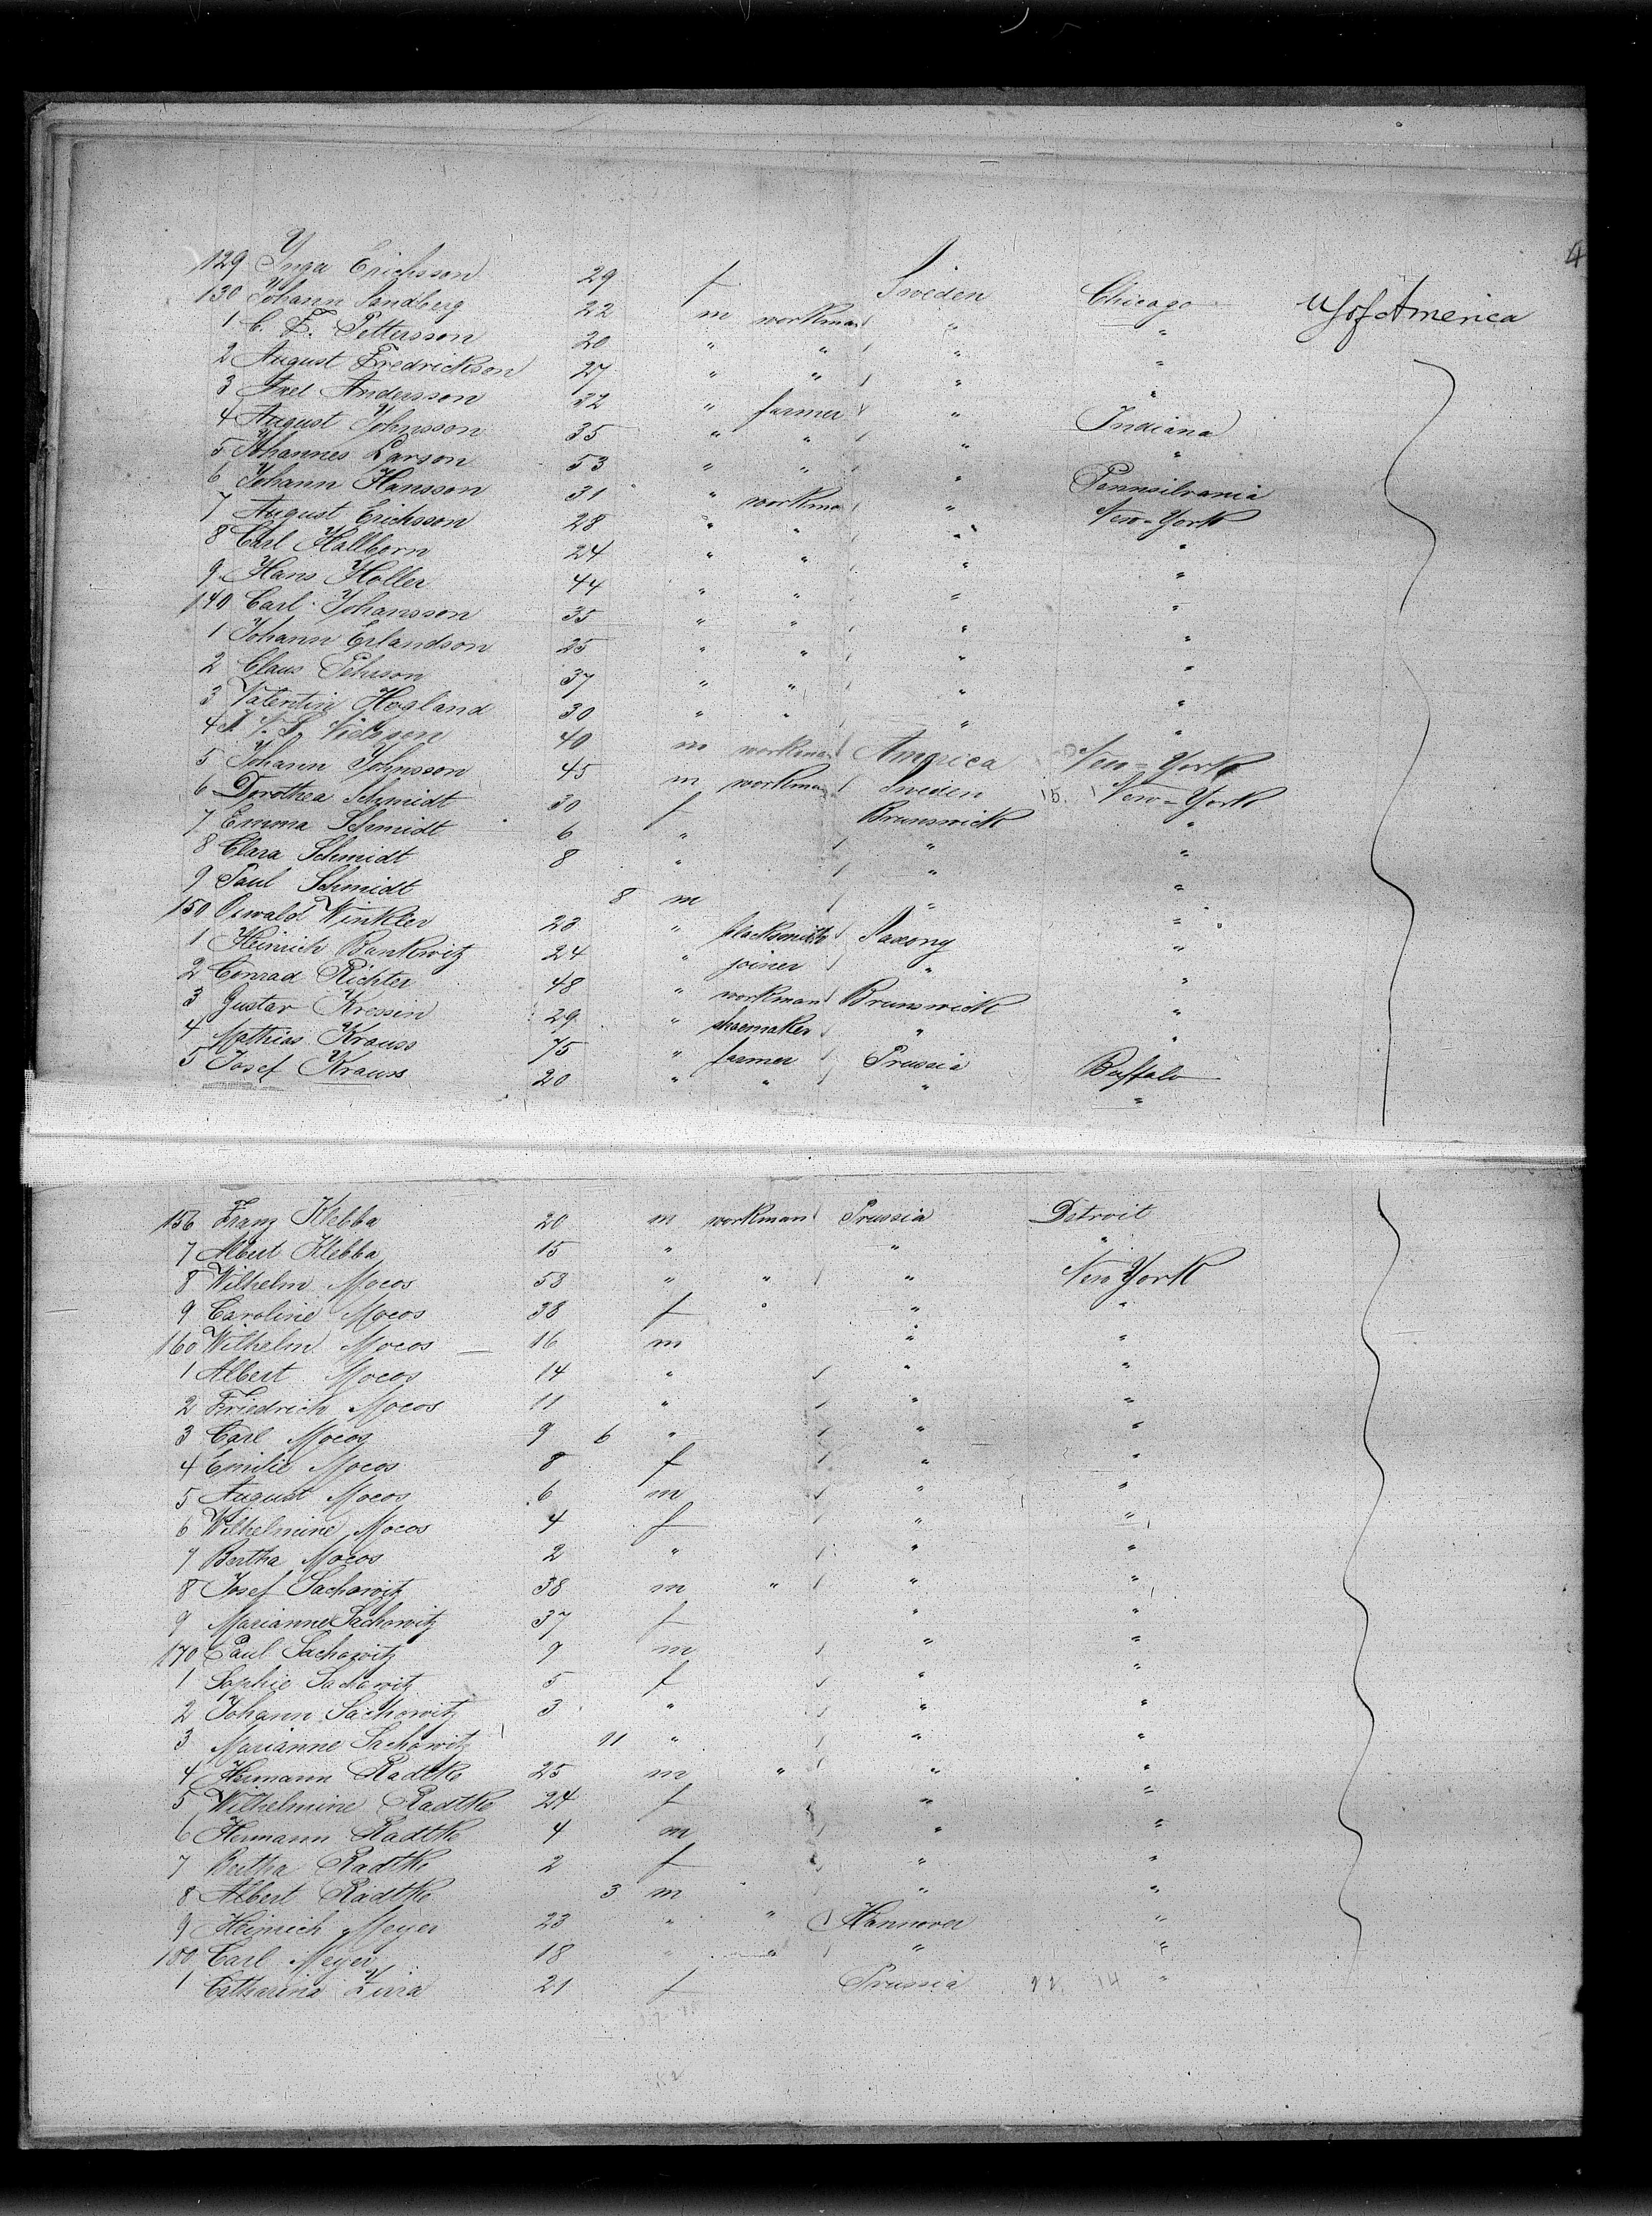 4
129 Inga Erichsson 29 f Sweden Chicago U S of America
130 Johann Sandberg 22 m workman " "
1 C. E. Pettersson 20 " " " "
2 August Fredrickson 27 " " " "
3 Axel Andersson 32 " farmer " Indiana
4 August Johnsson 35 " " " "
5 Johannes Larson 53 " " " Pennsilvania
6 Johann Hansson 31 " workman " New-York
7 August Erichsson 28 " " " "
8 Carl Hallborn 24 " " " "
9 Hans Holler 44 " " " "
140 Carl Johansson 35 " " " "
1 Johann Erlandson 25 " " " "
2 Claus Pehrson 37 " " " "
3 Valentin Hogland 30 " " " "
4 N. S. Nielsson 40 m workman America New-York
5 Johann Johnsson 45 m workman Sweden New-York
6 Dorothea Schmidt 30 f Brunswick "
7 Emma Schmidt 6 " " "
8 Clara Schmidt 8 " " "
9 Paul Schmidt 8 m " "
150 Oswald Winkler 23 " blacksmith Saxony "
1 Heinrich Bankwitz 24 " joiner " "
2 Conrad Richter 48 " workman Brunswick "
3 Gustav Kressin 29 " shoemaker " "
4 Mathias Krauss 75 " farmer Prussia Buffalo
5 Josef Krauss 20 " " " "
156 Franz Klebba 20 m workman Prussia Detroit
7 Albert Klebba 15 " " "
8 Wilhelm Mocos 53 " " " New York
9 Caroline Mocos 38 f " "
160 Wilhelm Mocos 16 m " "
1 Albert Mocos 14 " " "
2 Friedrich Mocos 11 " " "
3 Carl Mocos 9 6 " " "
4 Emilie Mocos 8 f " "
5 August Mocos 6 m " "
6 Wilhelmine Mocos 4 f " "
7 Bertha Mocos 2 " " "
8 Josef Sachowitz 38 m " " "
9 Marianne Sachowitz 37 f " "
170 Paul Sachowitz 9 m " "
1 Sophie Sachowitz 5 f " "
2 Johann Sachowitz 3 " " "
3 Marianne Sachowitz 11 " " "
4 Hermann Radtke 25 m " " "
5 Wilhelmine Radtke 24 f " "
6 Hermann Radtke 4 m " "
7 Bertha Radtke 2 f " "
8 Albert Radtke 3 m " "
9 Heinrich Meyer 23 " " Hannover "
180 Carl Meyer 18 " " " "
1 Catharina 21 f Prussia "